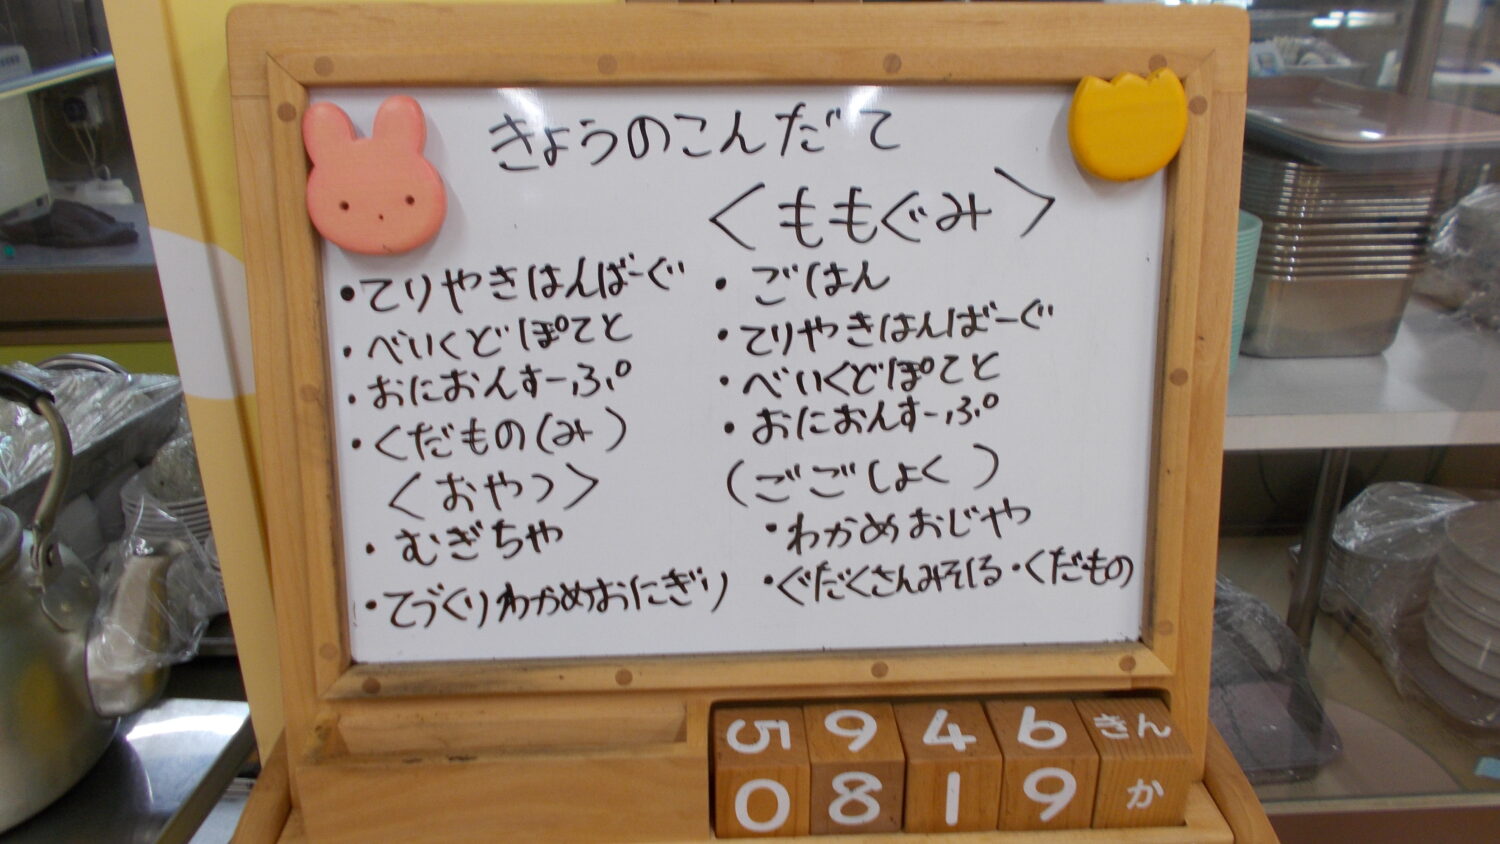 きょうのこんだて
<ももぐみ>
・てりやきはんばーぐ
・べいくどぽてと
・おにおんすーぷ
・くだもの(み)
<おやつ>
・むぎちゃ
・てづくりわかめおにぎり
・ごはん
・てりやきはんばーぐ
・べいくどぽてと
・おにおんすーぷ
(ごごしょく)
・わかめおじや
・ぐだくさんみそしる・くだもの
5 9 4 6 きん
0 8 1 9 か